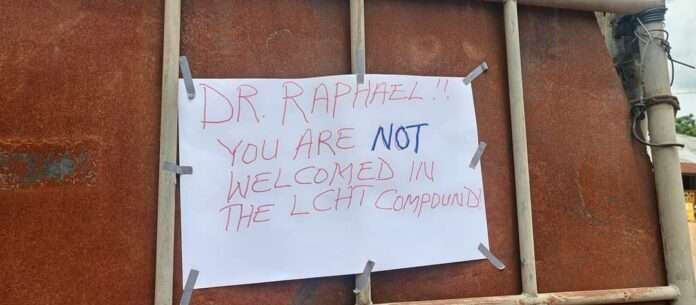 DR. RAPHAEL!!
YOU ARE NOT
WELCOMED IN
THE LCHT COMPOUND!